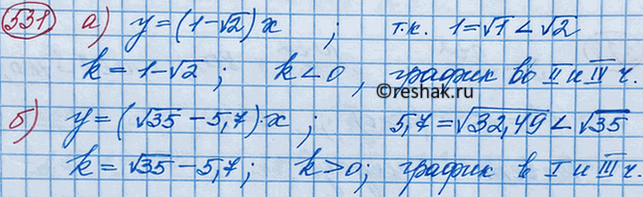 531 а) y = (1-√2) x ; т.к. 1=√1 < √2
k = 1-√2 ; k < 0 , график во II и IV ч.
©reshak.ru
б) y = (√35 - 5,7)·x ; 5,7 = √32,49 < √35
k = √35 - 5,7 ; k > 0 ; график в I и III ч.